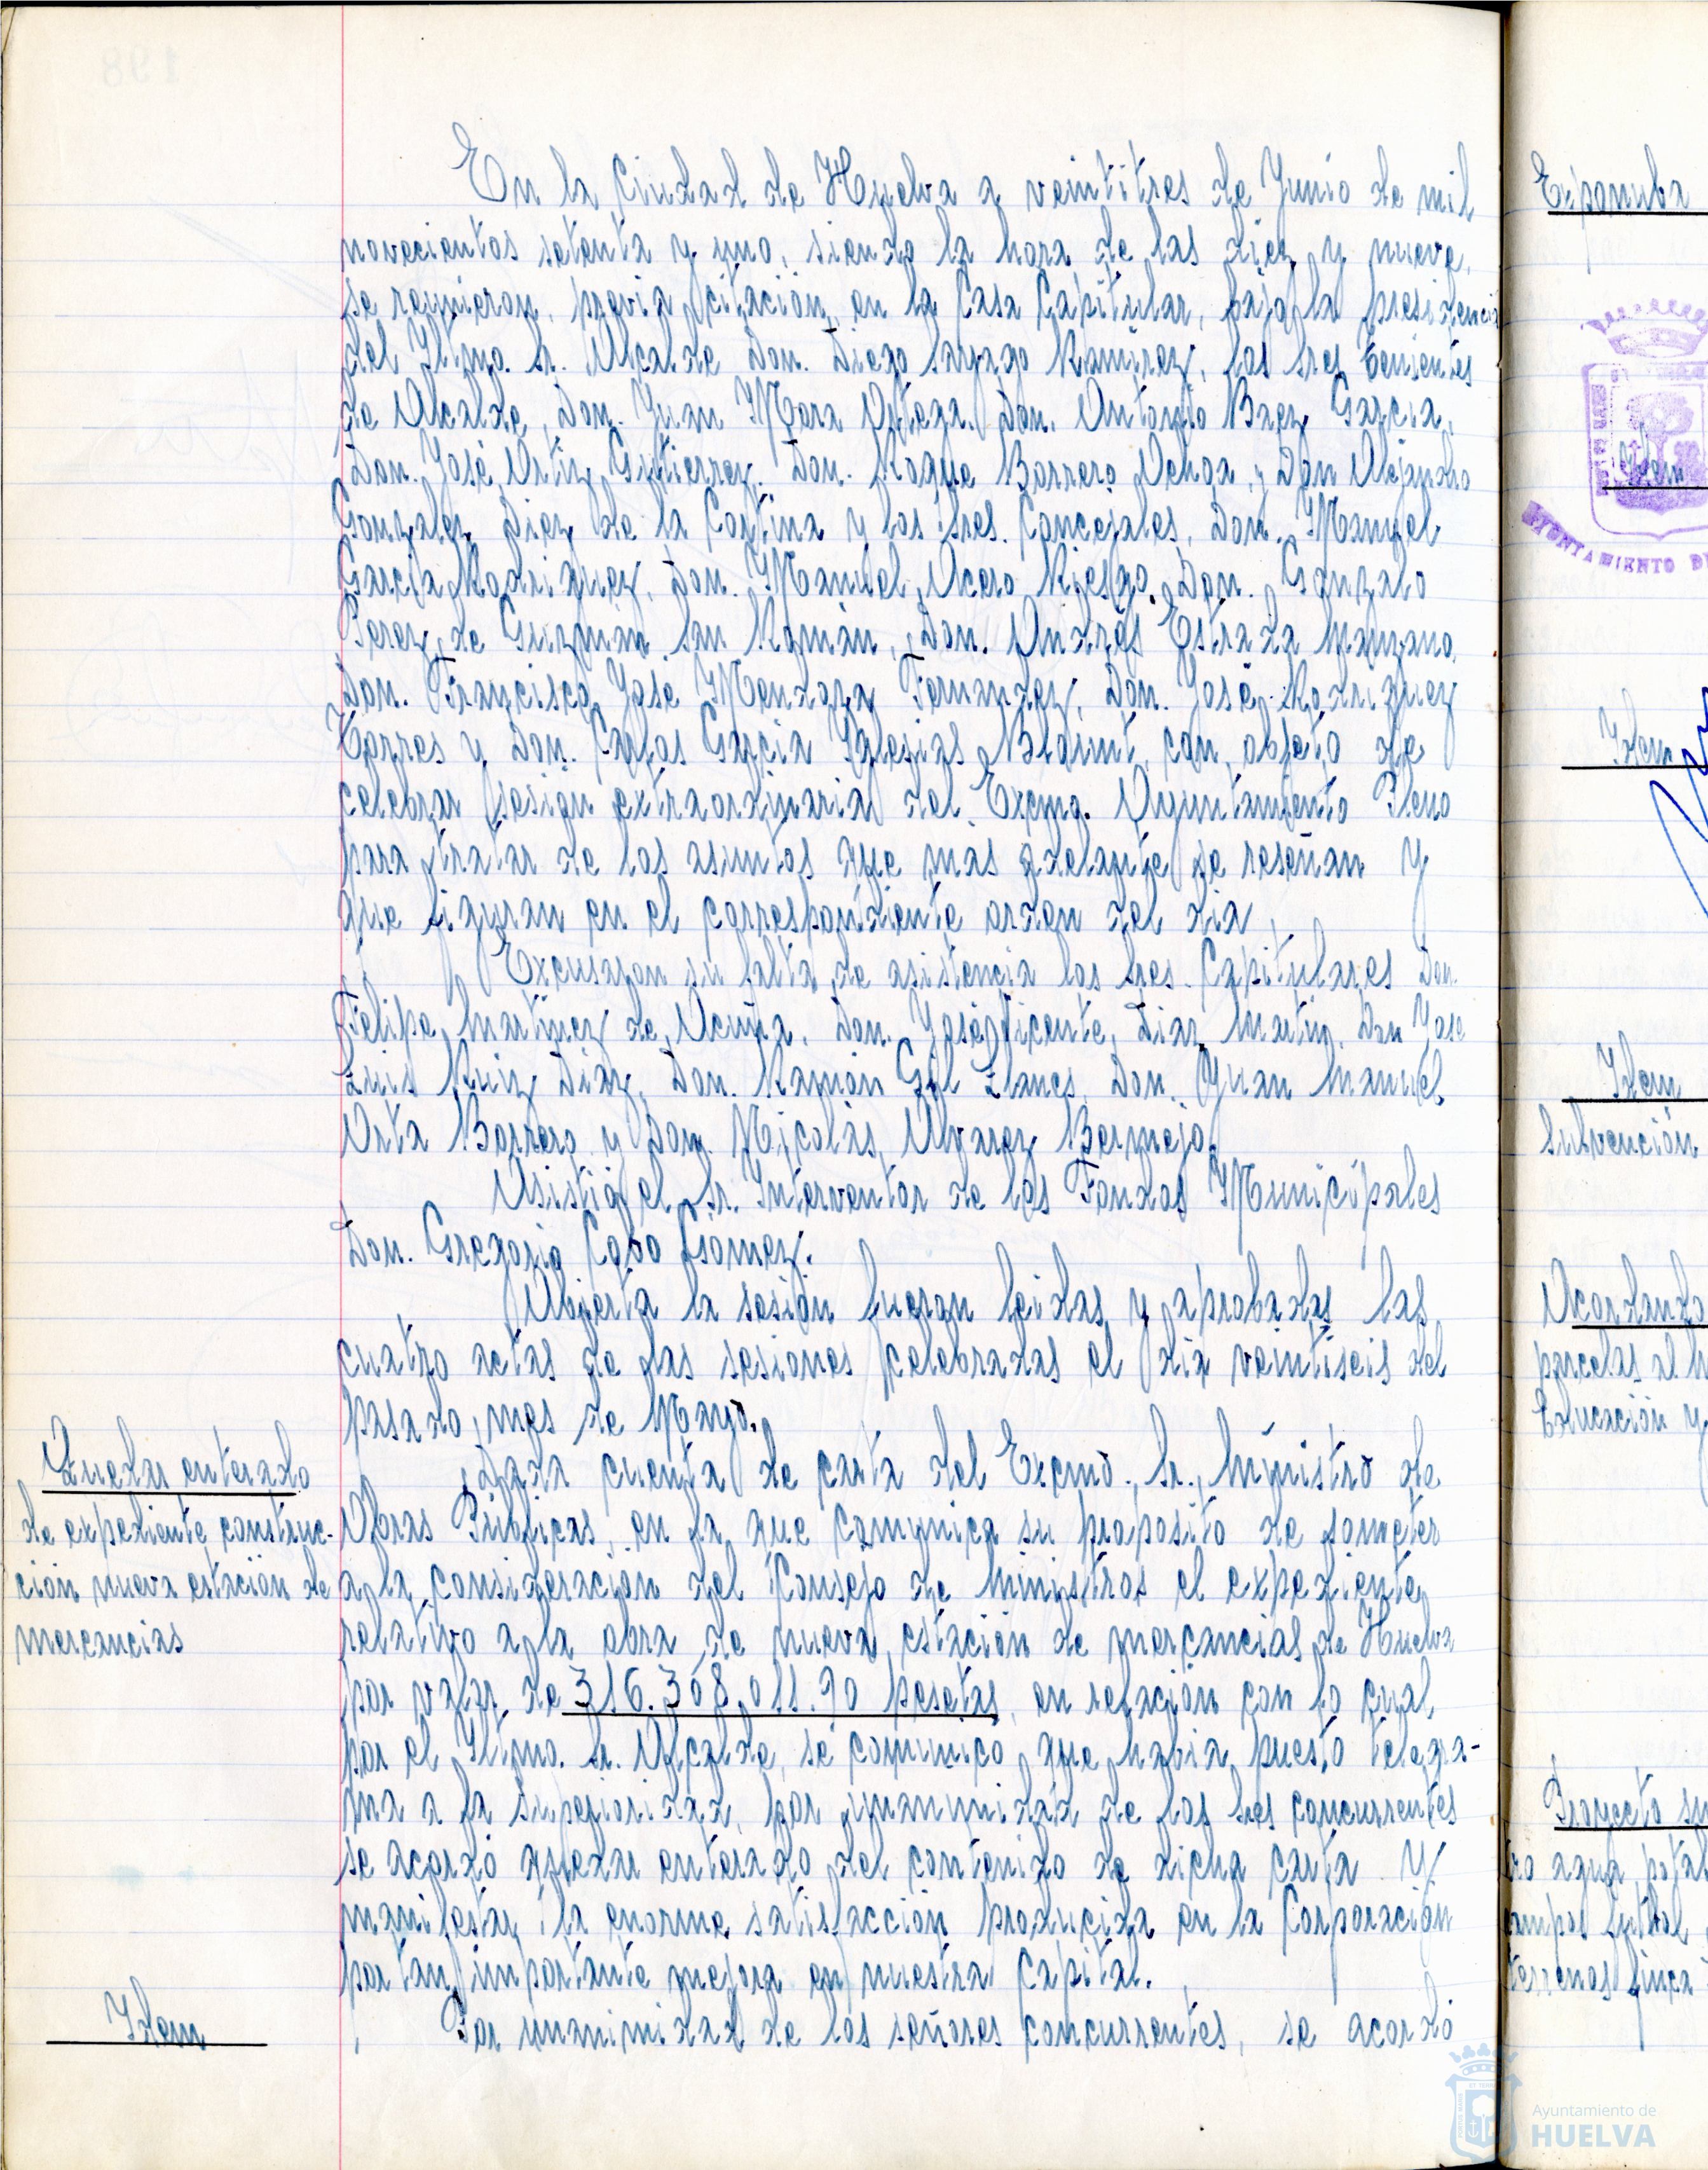 En la Ciudad de Huelva a veintitres de Junio de mil
novecientos setenta y uno, siendo la hora de las diez y nueve,
se reunieron, previa citación, en la Casa Capitular, bajo la presidencia
del Iltmo. Sr. Alcalde Don. Diego Sayago Ramirez, los Sres Tenientes
de Alcalde, Don. Juan Mora Ortega. Don. Antonio Baez Garcia,
Don. José Ortiz Gutierrez. Don. Roque Barrero Ochoa, y Don Alejandro
Gonzalez Diez de la Cortina y los Sres. Concejales, Don. Manuel
Garcia Rodriguez, Don. Manuel Acero Riesgo, Don. Gonzalo
Perez de Guzman San Román, Don. Andrés Estrada Manzano,
Don. Francisco José Mendoza Fernandez, Don. José Rodriguez
Torres y Don. Carlos Garcia Iglesias, con objeto de
celebrar sesion extraordinaria del Excmo. Ayuntamiento Pleno
para tratar de los asuntos que mas adelante se reseñan y
que figuran en el correspondiente orden del dia,
Excusaron su falta de asistencia los Sres. Capitulares Don.
Felipe Martinez de Acuña, Don. José Vicente Diaz Martin, Don José
Luis Ruiz Diaz, Don. Ramón Gil Llanes, Don. Juan Manuel
Orta Borrero y Don. Nicolás Alvarez Bermejo.
Asistió el Sr. Interventor de los Fondos Municipales
Don. Gregorio Gomez.
Abierta la sesión fueron leidas y aprobadas las
cuatro actas de las sesiones celebradas el dia veintiseis del
pasado mes de Mayo.
Quedar enterado
de expediente construc-
ción nueva estación de
mercancias
Dada cuenta de carta del Excmo. Sr. Ministro de
Obras Públicas, en la que comunica su propósito de someter
a la consideración del Consejo de Ministros el expediente
relativo a la obra de nueva estación de mercancias de Huelva
por valor de 316.308.011.90 pesetas, en relación con lo cual
por el Iltmo. Sr. Alcalde, se comunicó que habia puesto telegra-
ma a la Superioridad, por unanimidad de los Sres concurrentes
se acordó quedar enterado del contenido de dicha carta y
manifestar la enorme satisfacción producida en la Corporación
por tan importante mejora en nuestra Capital.
Idem
Por unanimidad de los señores concurrentes, se acordó
Idem
Idem
Idem
Subvención
Acordando
parcelas al
Educación y
Proyecto
Ayuntamiento de
HUELVA